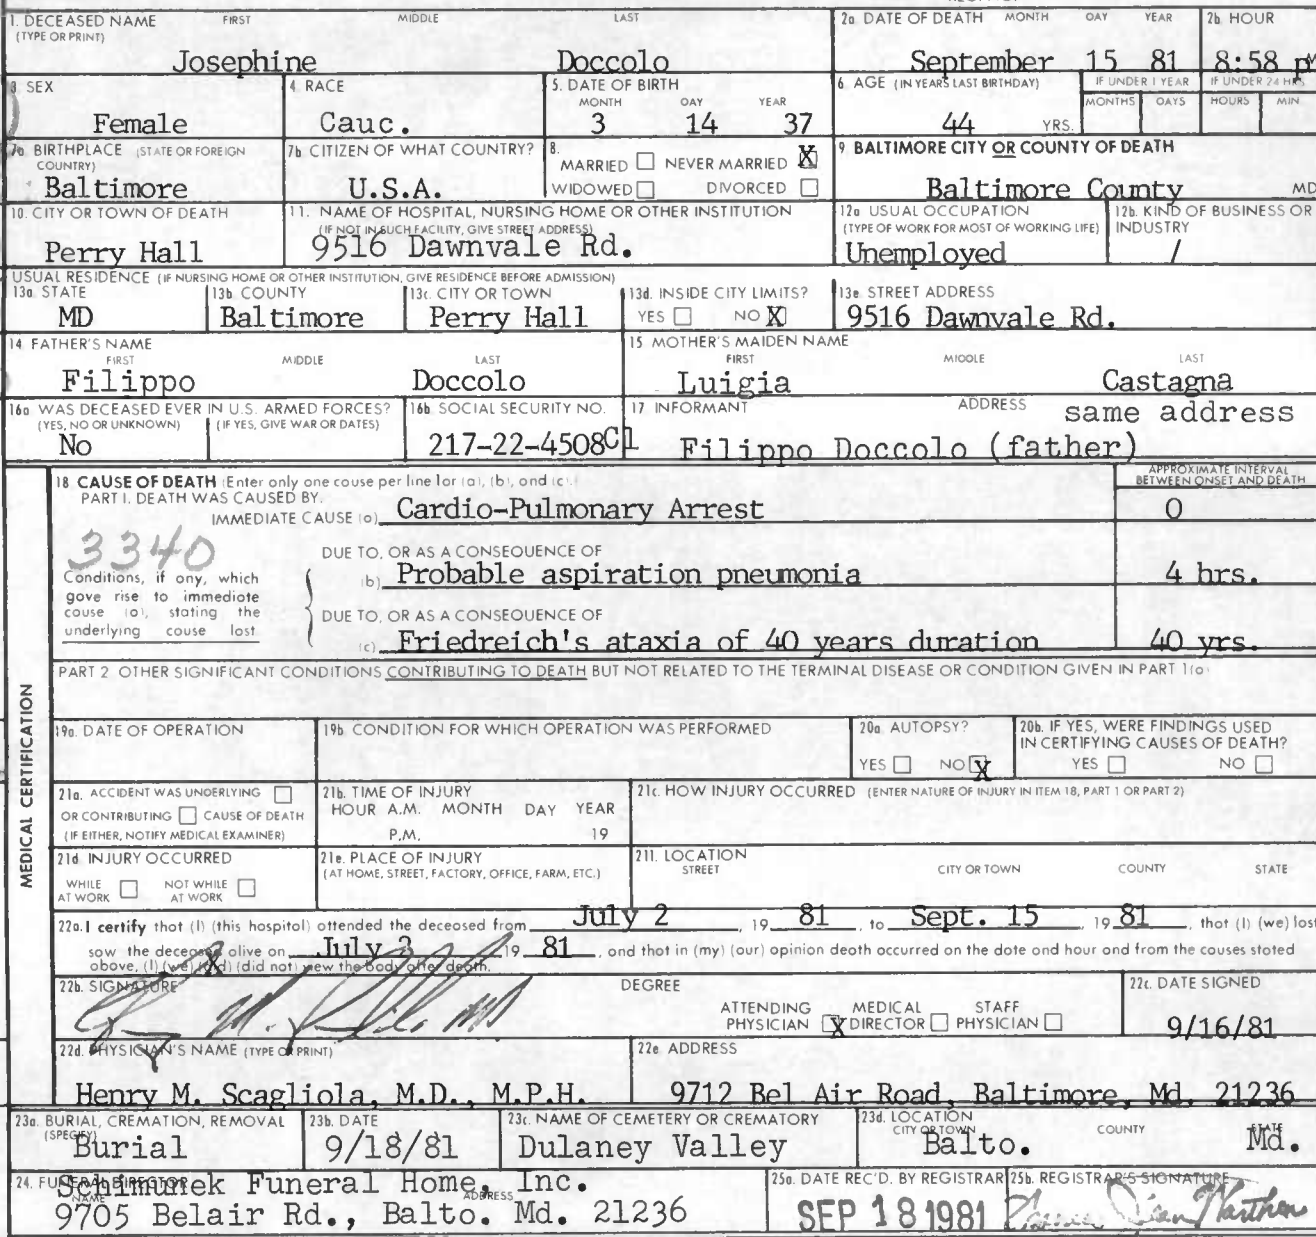 1. DECEASED NAME FIRST MIDDLE LAST
(TYPE OR PRINT)
Josephine Doccolo
2a DATE OF DEATH MONTH DAY YEAR
September 15 81
2b HOUR
8:58 PM
3 SEX
Female
4 RACE
Cauc.
5. DATE OF BIRTH
MONTH DAY YEAR
3 14 37
6 AGE (IN YEARS LAST BIRTHDAY)
44 YRS.
IF UNDER 1 YEAR
MONTHS DAYS
IF UNDER 24 HRS
HOURS MIN
7a BIRTHPLACE (STATE OR FOREIGN
COUNTRY)
Baltimore
7b CITIZEN OF WHAT COUNTRY?
U.S.A.
8.
MARRIED NEVER MARRIED X
WIDOWED DIVORCED
9 BALTIMORE CITY OR COUNTY OF DEATH
Baltimore County MD
10. CITY OR TOWN OF DEATH
Perry Hall
11. NAME OF HOSPITAL, NURSING HOME OR OTHER INSTITUTION
(IF NOT IN SUCH FACILITY, GIVE STREET ADDRESS)
9516 Dawnvale Rd.
12a USUAL OCCUPATION
(TYPE OF WORK FOR MOST OF WORKING LIFE)
Unemployed
12b. KIND OF BUSINESS OR
INDUSTRY
/
USUAL RESIDENCE (IF NURSING HOME OR OTHER INSTITUTION, GIVE RESIDENCE BEFORE ADMISSION)
13a. STATE
MD
13b COUNTY
Baltimore
13c. CITY OR TOWN
Perry Hall
13d. INSIDE CITY LIMITS?
YES NO X
13e STREET ADDRESS
9516 Dawnvale Rd.
14 FATHER'S NAME
FIRST MIDDLE LAST
Filippo Doccolo
15 MOTHER'S MAIDEN NAME
FIRST MIDDLE LAST
Luigia Castagna
16a WAS DECEASED EVER IN U.S. ARMED FORCES?
(YES, NO OR UNKNOWN) (IF YES, GIVE WAR OR DATES)
No
16b SOCIAL SECURITY NO.
217-22-4508C1
17 INFORMANT ADDRESS same address
Filippo Doccolo (father)
18 CAUSE OF DEATH (Enter only one cause per line for (a), (b), and (c).)
PART I. DEATH WAS CAUSED BY.
APPROXIMATE INTERVAL
BETWEEN ONSET AND DEATH
IMMEDIATE CAUSE (a) Cardio-Pulmonary Arrest 0
3340
DUE TO, OR AS A CONSEQUENCE OF
(b) Probable aspiration pneumonia 4 hrs.
Conditions, if any, which
gave rise to immediate
cause (a), stating the
underlying cause last
DUE TO, OR AS A CONSEQUENCE OF
(c) Friedreich's ataxia of 40 years duration 40 yrs.
PART 2 OTHER SIGNIFICANT CONDITIONS CONTRIBUTING TO DEATH BUT NOT RELATED TO THE TERMINAL DISEASE OR CONDITION GIVEN IN PART 1(a)
MEDICAL CERTIFICATION
19a. DATE OF OPERATION
19b CONDITION FOR WHICH OPERATION WAS PERFORMED
20a AUTOPSY?
YES NO X
20b. IF YES, WERE FINDINGS USED
IN CERTIFYING CAUSES OF DEATH?
YES NO
21a. ACCIDENT WAS UNDERLYING
OR CONTRIBUTING CAUSE OF DEATH
(IF EITHER, NOTIFY MEDICAL EXAMINER)
21b. TIME OF INJURY
HOUR A.M. MONTH DAY YEAR
P.M. 19
21c. HOW INJURY OCCURRED (ENTER NATURE OF INJURY IN ITEM 18, PART 1 OR PART 2)
21d INJURY OCCURRED
WHILE AT WORK NOT WHILE AT WORK
21e. PLACE OF INJURY
(AT HOME, STREET, FACTORY, OFFICE, FARM, ETC.)
21f. LOCATION
STREET CITY OR TOWN COUNTY STATE
22a. I certify that (I) (this hospital) attended the deceased from July 2, 19 81, to Sept. 15 19 81, that (I) (we) last
saw the deceased alive on July 2 19 81, and that in (my) (our) opinion death occurred on the date and hour and from the causes stated
above, (I) (we) (did) (did not) view the body after death.
22b. SIGNATURE DEGREE
ATTENDING PHYSICIAN X MEDICAL DIRECTOR STAFF PHYSICIAN
22c. DATE SIGNED
9/16/81
22d. PHYSICIAN'S NAME (TYPE OR PRINT)
Henry M. Scagliola, M.D., M.P.H.
22e ADDRESS
9712 Bel Air Road, Baltimore, Md. 21236
23a. BURIAL, CREMATION, REMOVAL
(SPECIFY)
Burial
23b. DATE
9/18/81
23c. NAME OF CEMETERY OR CREMATORY
Dulaney Valley
23d. LOCATION
CITY OR TOWN COUNTY STATE
Balto. Md.
24. FUNERAL DIRECTOR
NAME ADDRESS
Schimunek Funeral Home, Inc.
9705 Belair Rd., Balto. Md. 21236
25a. DATE REC'D. BY REGISTRAR
SEP 18 1981
25b. REGISTRAR'S SIGNATURE